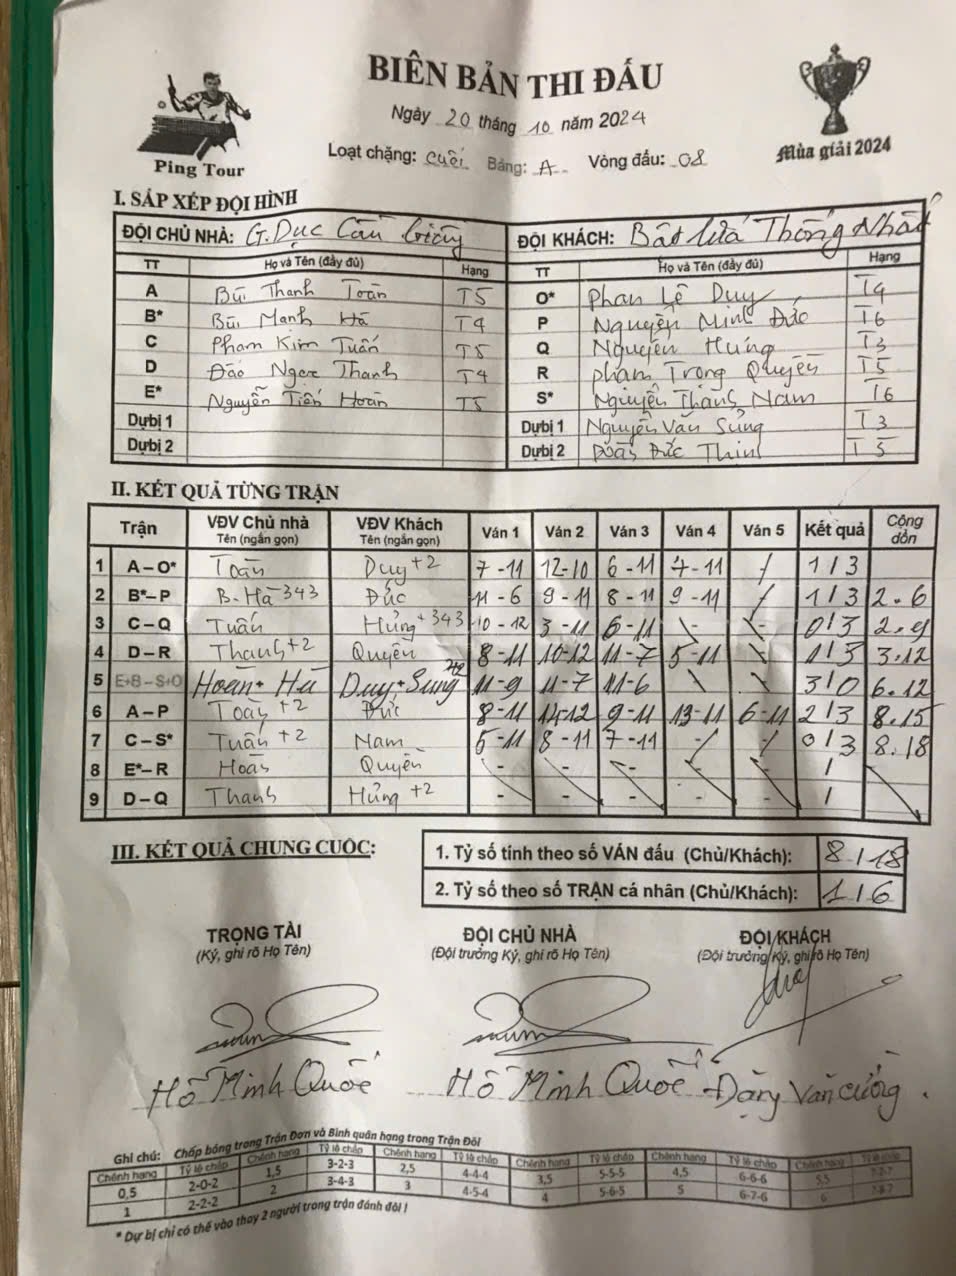 BIÊN BẢN THI ĐẤU
Ngày 20 tháng 10 năm 2024
Ping Tour
Loại chặng: Cuối Bảng: A Vòng đấu: 08
Mùa giải 2024
I. SẮP XẾP ĐỘI HÌNH
ĐỘI CHỦ NHÀ: G.Dục Cầu Giấy ĐỘI KHÁCH: Bật lửa Thống Nhất
TT Họ và Tên (đầy đủ) Hạng TT Họ và Tên (đầy đủ) Hạng
A Bùi Thanh Toàn T5 O* Phan Lê Duy T4
B* Bùi Mạnh Hà T4 P Nguyễn Minh Đức T6
C Phạm Kim Tuấn T5 Q Nguyễn Hưng T3
D Đào Ngọc Thanh T4 R Phạm Trọng Quyền T5
E* Nguyễn Tiến Hoàn T5 S* Nguyễn Thành Nam T6
Dựbị 1 Dựbị 1 Nguyễn Văn Sủng T3
Dựbị 2 Dựbị 2 Đoàn Đức Thịnh T5
II. KẾT QUẢ TỪNG TRẬN
Trận VĐV Chủ nhà Tên (ngắn gọn) VĐV Khách Tên (ngắn gọn) Ván 1 Ván 2 Ván 3 Ván 4 Ván 5 Kết quả Cộng dồn
1 A – O* Toàn Duy +2 7-11 12-10 6-11 4-11 / 1/3
2 B* – P B.Hà -343 Đức 11-6 9-11 8-11 9-11 / 1/3 2.6
3 C – Q Tuấn Hưng +343 10-12 3-11 6-11 \ \ 0/3 2.9
4 D – R Thanh +2 Quyền 8-11 10-12 11-7 5-11 \ 1/3 3.12
5 E+B – S+O Hoàn + Hà Duy + Sủng 11-9 11-7 11-6 \ \ 3/0 6.12
6 A – P Toàn +2 Đức 8-11 14-12 9-11 13-11 6-11 2/3 8.15
7 C – S* Tuấn +2 Nam 5-11 8-11 7-11 / / 0/3 8.18
8 E* – R Hoàn Quyền - - - - - /
9 D – Q Thanh Hưng +2 - - - - - /
III. KẾT QUẢ CHUNG CUỘC:
1. Tỷ số tính theo số VÁN đấu (Chủ/Khách): 8/18
2. Tỷ số theo số TRẬN cá nhân (Chủ/Khách): 1/6
TRỌNG TÀI ĐỘI CHỦ NHÀ ĐỘI KHÁCH
(Ký, ghi rõ Họ Tên) (Đội trưởng Ký, ghi rõ Họ Tên) (Đội trưởng Ký, ghi rõ Họ Tên)
Hồ Minh Quốc Hồ Minh Quốc Đặng Văn Cường
Ghi chú: Chấp bóng trong Trận Đơn và Bình quân hạng trong Trận Đôi
Chênh hạng Tỷ lệ chấp Chênh hạng Tỷ lệ chấp Chênh hạng Tỷ lệ chấp Chênh hạng Tỷ lệ chấp Chênh hạng Tỷ lệ chấp Chênh hạng Tỷ lệ chấp
0,5 2-0-2 1,5 3-2-3 2,5 4-4-4 3,5 5-5-5 4,5 6-6-6 5,5 7-7-7
1 2-2-2 2 3-4-3 3 4-5-4 4 5-6-5 5 6-7-6 6
* Dự bị chỉ có thể vào thay 2 người trong trận đánh đôi !